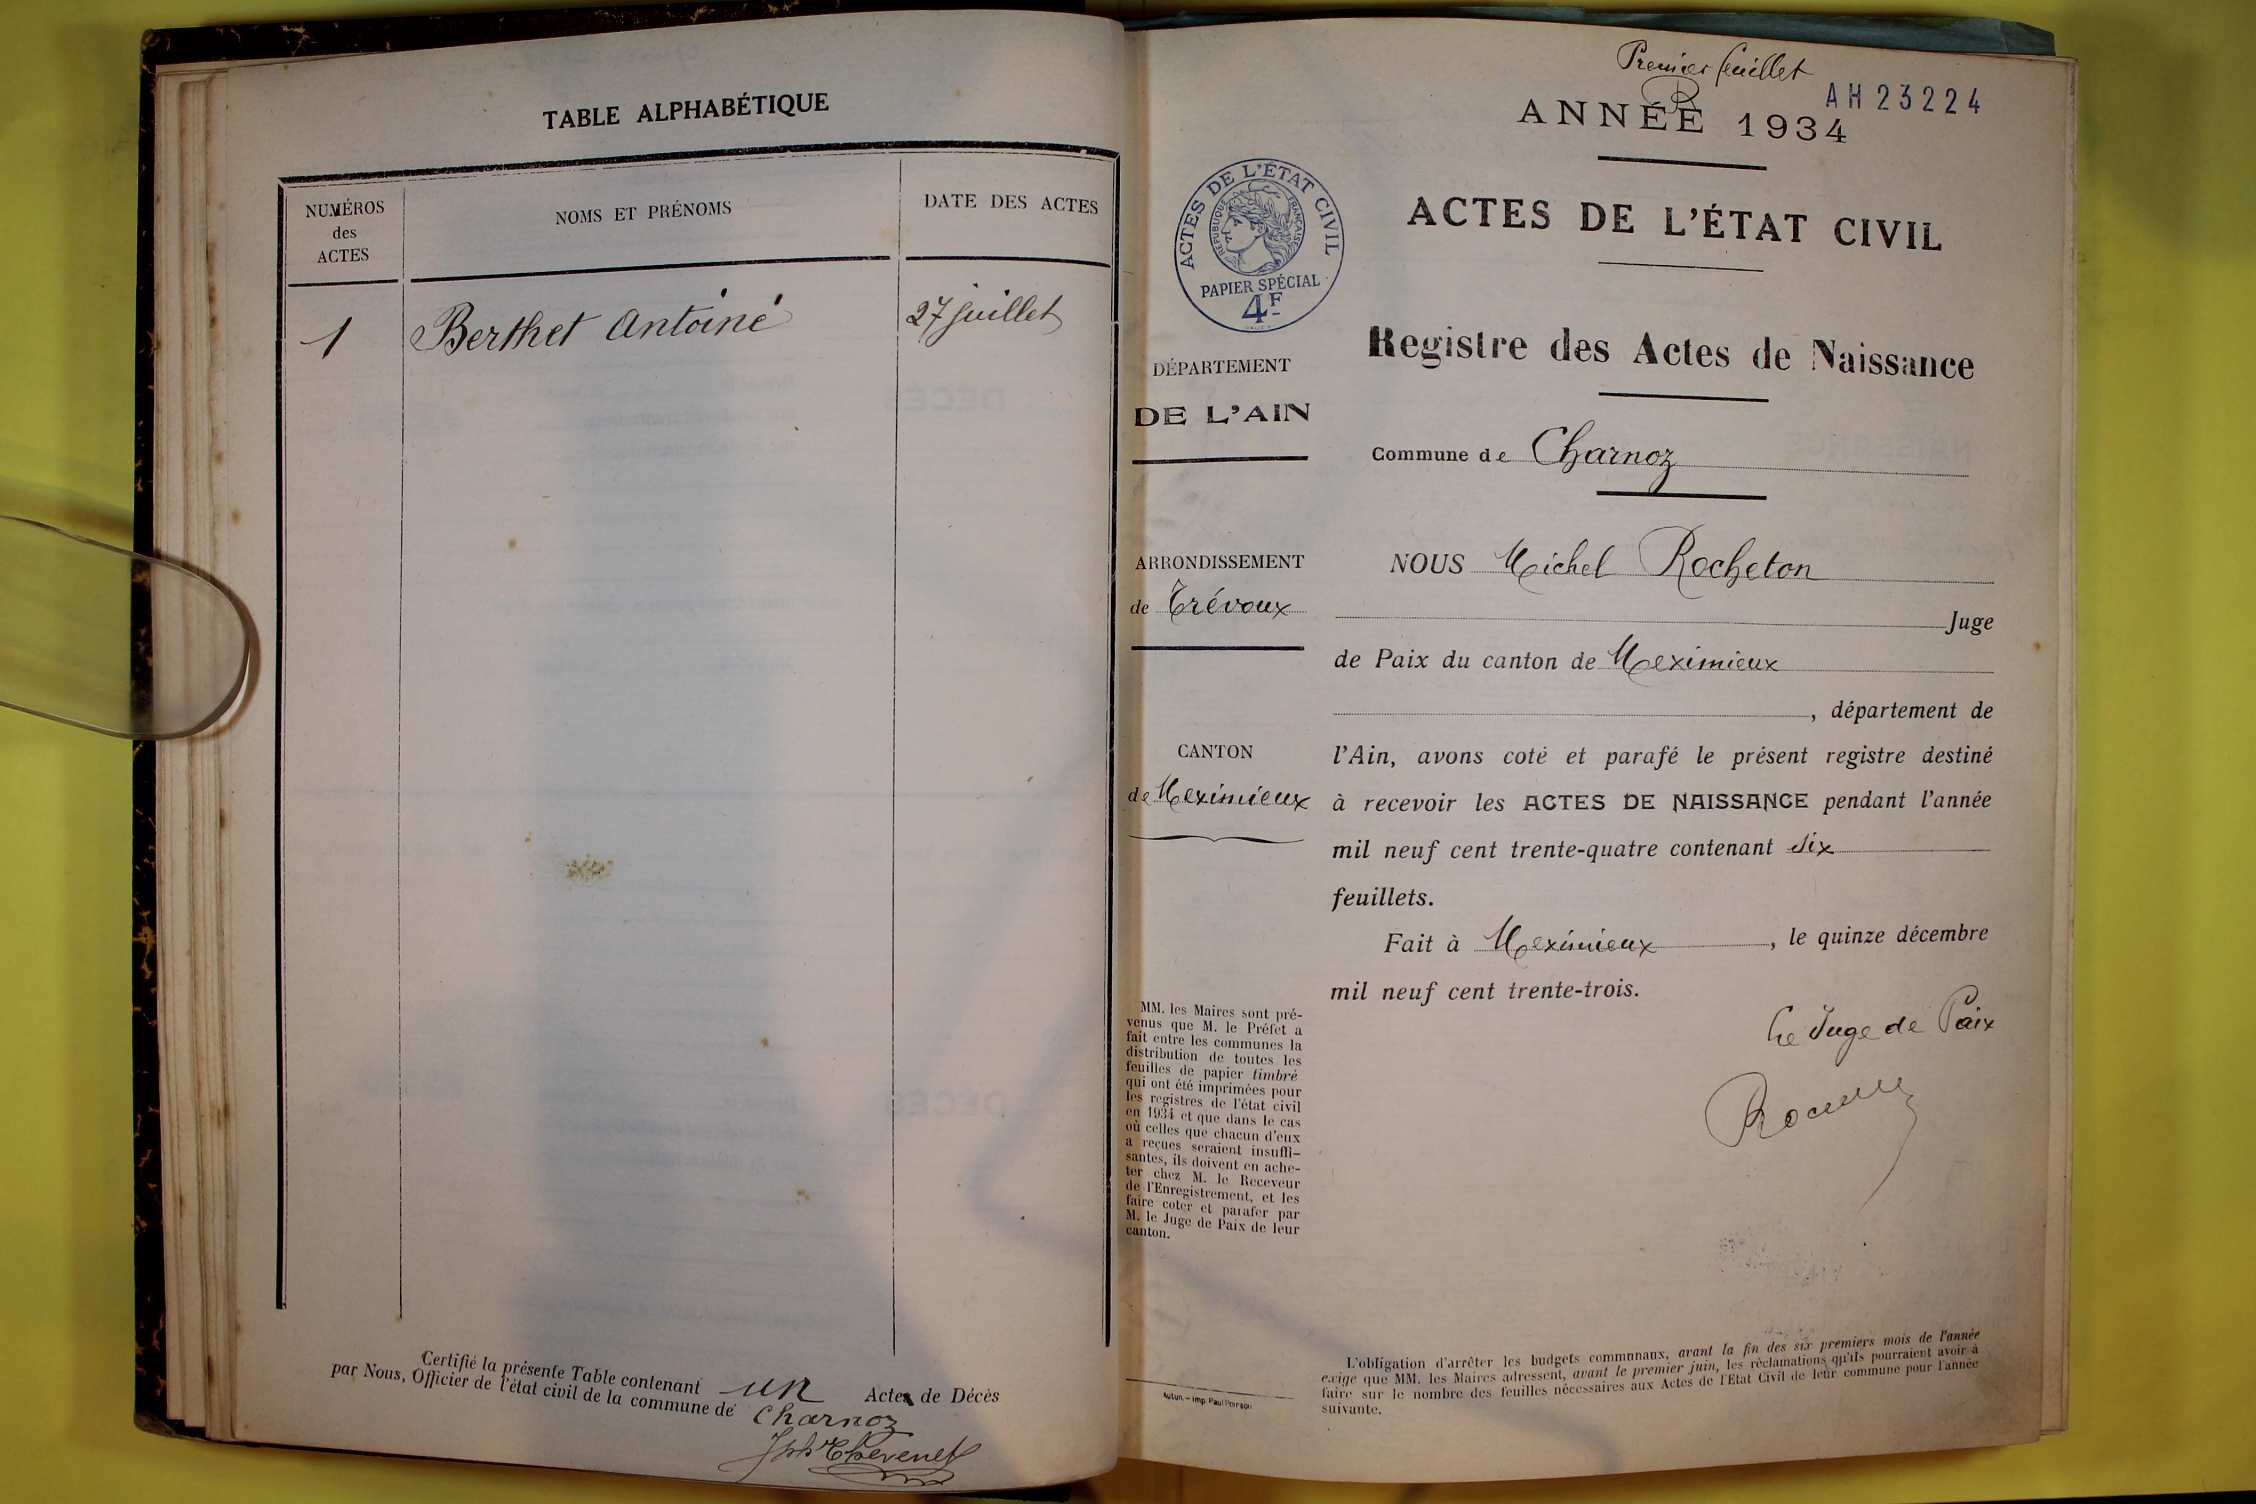 TABLE ALPHABÉTIQUE
NUMÉROS
des
ACTES
NOMS ET PRÉNOMS
DATE DES ACTES
1 Berthet Antoine 27 juillet
Certifié la présente Table contenant un Actes de Décès
par Nous, Officier de l'état civil de la commune de Charnoz
Jph Thevenet
Premier feuillet
AH 23224
ANNÉE 1934
ACTES DE L'ÉTAT CIVIL
ACTES DE L'ÉTAT CIVIL
RÉPUBLIQUE FRANÇAISE
PAPIER SPÉCIAL
4F
Registre des Actes de Naissance
DÉPARTEMENT
DE L'AIN
Commune de Charnoz
ARRONDISSEMENT
de Trévoux
CANTON
de Meximieux
NOUS Michel Rocheton
Juge
de Paix du canton de Meximieux
, département de
l'Ain, avons coté et parafé le présent registre destiné
à recevoir les ACTES DE NAISSANCE pendant l'année
mil neuf cent trente-quatre contenant six
feuillets.
Fait à Meximieux, le quinze décembre
mil neuf cent trente-trois.
Le Juge de Paix
MM. les Maires sont pré-
venus que M. le Préfet a
fait entre les communes la
distribution de toutes les
feuilles de papier timbré
qui ont été imprimées pour
les registres de l'état civil
en 1934 et que dans le cas
où celles que chacun d'eux
a reçues seraient insuffi-
santes, ils doivent en ache-
ter chez M. le Receveur
de l'Enregistrement, et les
faire coter et parafer par
M. le Juge de Paix de leur
canton.
Autun. - Imp. Paul
L'obligation d'arrêter les budgets communaux, avant la fin des six premiers mois de l'année
exige que MM. les Maires adressent, avant le premier juin, les réclamations qu'ils pourraient avoir à
faire sur le nombre des feuilles nécessaires aux Actes de l'Etat Civil de leur commune pour l'année
suivante.